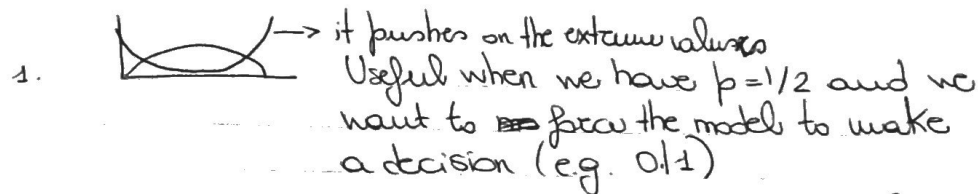 1. → it pushes on the extreme values
Useful when we have p=1/2 and we
want to force the model to make
a decision (e.g. 0/1)